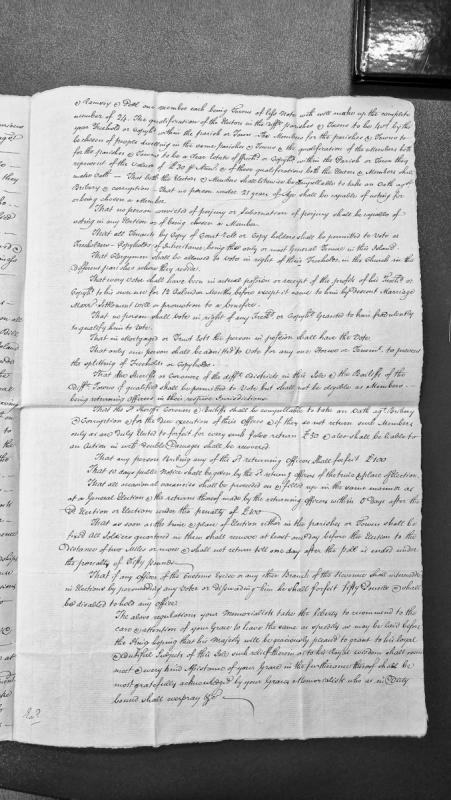 & Ramsey & Peel one member each being Towns of less Note wch will make up the complete
number of 24. The qualification of the Electors in the difft parishes & Towns to be 40s/ by the
year Freehold or Copyhd within the parish or Town. The Members for the parishes & Towns to
be chosen of people dwelling in the same parishes & Towns & the qualification of the Members both
for the parishes & Towns to be a clear Estate of Freehd or Copyhd within the Parish or Town they
represent of the Value of £30 p Annum & of those qualifications both the Electors & Members shall
make Oath — That both the Electors & Members shall likewise be compellable to take an Oath agst
Bribery & corruption — That no person under 21 years of Age shall be capable of voting for
or being chosen a Member
That no person convicted of perjury or Subornation of perjury shall be capable of
voting in any Election or of being chosen a Member.
That all Tenants by Copy of Court Roll or Copy holders shall be permitted to Vote as
Freeholders — Copyholds of Inheritance being the only or most General Tenure in this Island
That Clergymen shall be allowed to Vote in right of their Freeholds in the Church in the
different parishes where they reside.
That every Voter shall have been in actual possion or receipt of the profits of his Freehd or
Copyhd to his own use for 12 Calendar Months before except it came to him by Descent Marriage
Marr. Settlement Will or promotion to a benefice.
That no person shall Vote in right of any Freehd or Copyhd Granted to him fraudulently
to qualify him to Vote.
That in Mortgages or Trust Estes the person in possion shall have the Vote.
That only one person shall be admitted to Vote for any one House or Tenemt. to prevent
the splitting of Freeholds or Copyholds.
That the Sheriffs or Coroners of the difft districts in this Isle & the Bailiffs of the
difft Towns if qualified shall be permitted to Vote but shall not be eligible as Members —
being returning officers in their respive Jurisdictions.
That the sd Sheriffs Coroners & Bailiffs shall be compellable to take an Oath agst Bribery
& Corruption & for the due execution of their Offices & if they do not return such Members
only as are duly Elected to forfeit for every such false return £50 & also shall be liable to
an Action in wch Double Damages shall be recovered.
That any person bribing any of the sd returning Officers shall forfeit £100
That 10 days public Notice shall be given by the sd returng officers of the time & place of Election.
That all occasional vacancies shall be proceeded on & filled up in the same manner as
at a General Election & the returns thereof made by the returning officers within 6 days after the
sd Election or Elections under the penalty of £100
That as soon as the time & place of Election either in the parishes or Towns shall be
fixed all Soldiers quartered in them shall remove at least one day before the Election to the
Distance of two Miles or more & shall not return till one day after the poll is ended under
the penalty of Fifty pounds
That if any officer of the Customs Excise or any other Branch of the Revenue shall intermeddle
in Elections by persuading any Voter or dissuading him he shall forfeit fifty Pounds & shall
be disabled to hold any office
The above regulations your Memorialists take the liberty to recommend to the
care & attention of your Grace to leave the same as speedily as may be laid before
the King hoping that his Majesty will be graciously pleased to grant to his loyal
& dutiful Subjects of this Isle such relief therein as to his Royal wisdom shall seem
meet & every kind Assistance of your Grace in the furtherance thereof shall be
most gratefully acknowledged by your Graces Memorialists who as in Duty
bound shall ever pray &c